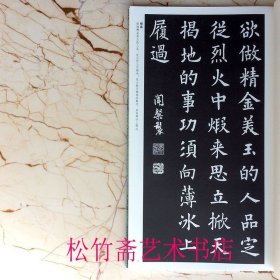 欲做精金美玉的人品定
從烈火中煅來思立掀天
揭地的事功須向薄冰上
履過
松竹斋艺术书店